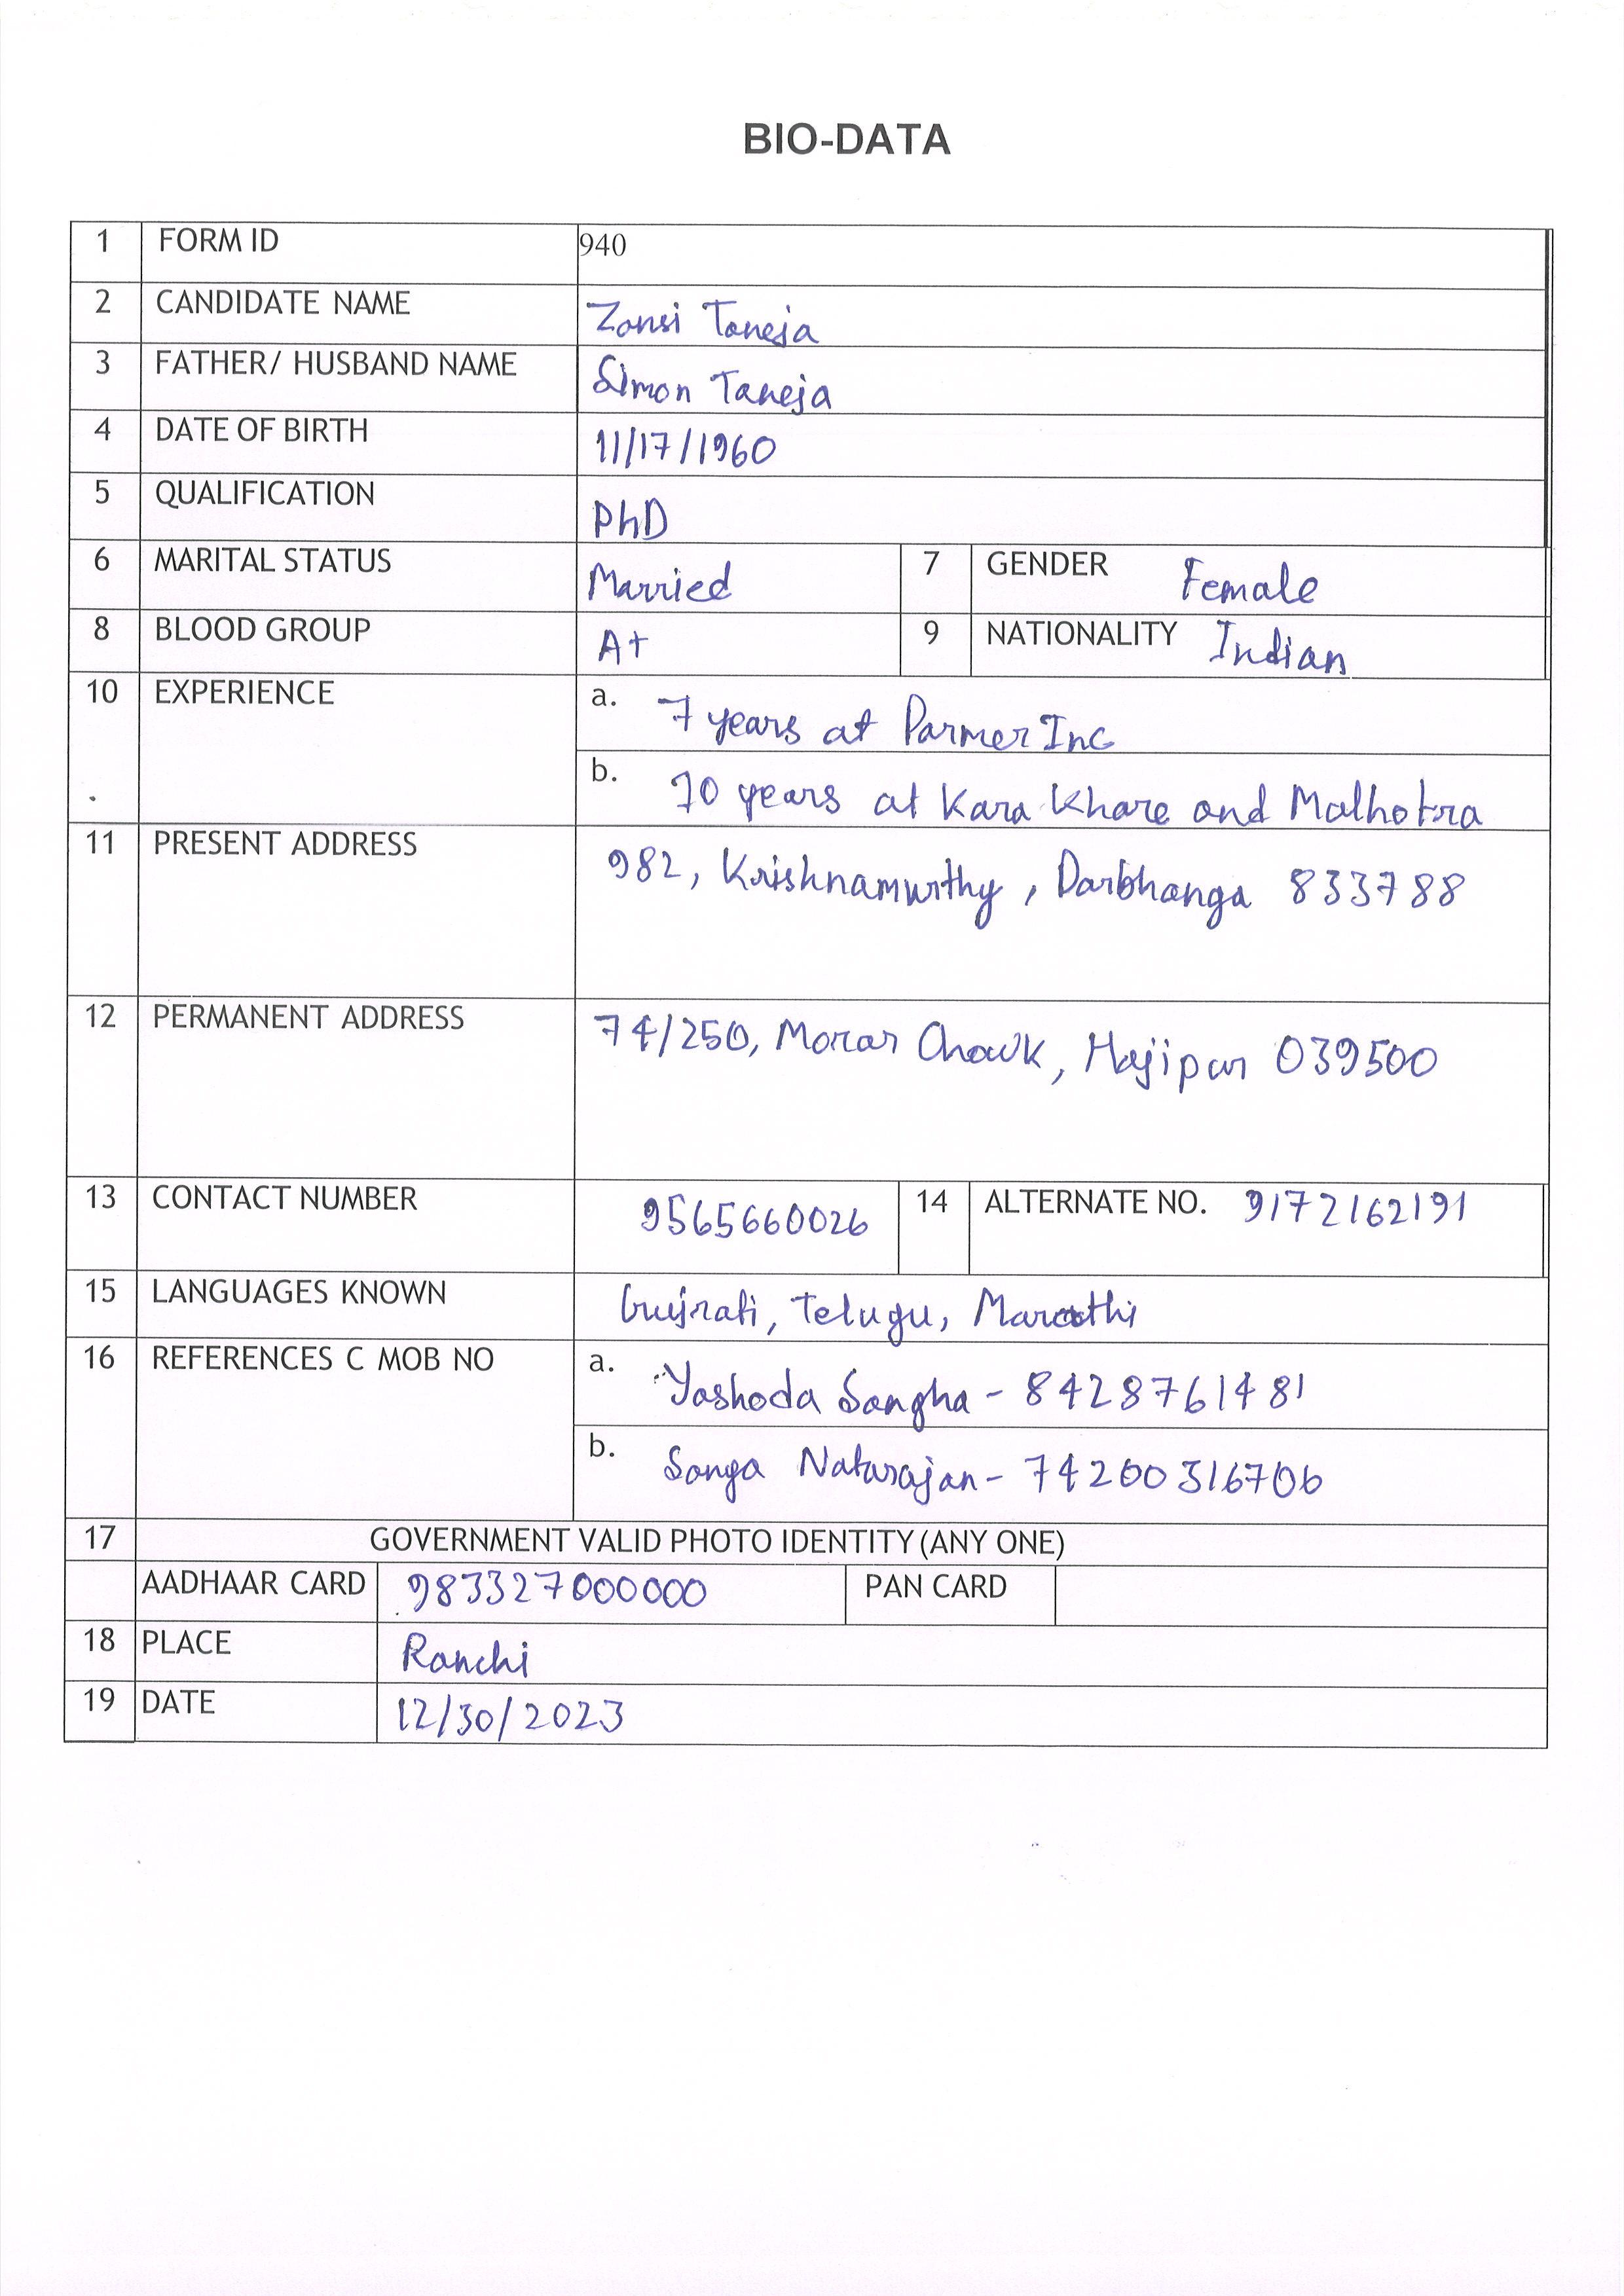 BIO-DATA
1 FORM ID 940
2 CANDIDATE NAME Zansi Taneja
3 FATHER/ HUSBAND NAME Simon Taneja
4 DATE OF BIRTH 11/17/1960
5 QUALIFICATION PhD
6 MARITAL STATUS Married 7 GENDER Female
8 BLOOD GROUP A+ 9 NATIONALITY Indian
10 EXPERIENCE a. 7 years at Parmer Inc
b. 10 years at Kara Khare and Malhotra
11 PRESENT ADDRESS 982, Krishnamurthy, Darbhanga 833788
12 PERMANENT ADDRESS 74/250, Morar Chowk, Hajipur 039500
13 CONTACT NUMBER 9565660026 14 ALTERNATE NO. 9172162191
15 LANGUAGES KNOWN Gujrati, Telugu, Marathi
16 REFERENCES C MOB NO a. Yashoda Sangha - 8428761481
b. Sanya Natarajan - 74200316706
17 GOVERNMENT VALID PHOTO IDENTITY (ANY ONE)
AADHAAR CARD 983327000000 PAN CARD
18 PLACE Ranchi
19 DATE 12/30/2023